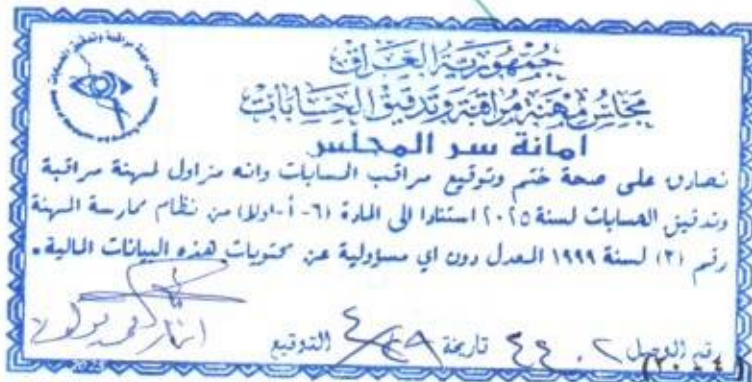 جمهورية العراق
مجلس مهنة مراقبة وتدقيق الحسابات
امانة سر المجلس
نصادق على صحة ختم وتوقيع مراقب الحسابات وانه مزاول لمهنة مراقبة
وتدقيق الحسابات لسنة ٢٠٢٥ استنادا الى المادة (٦-أ-اولا) من نظام ممارسة المهنة
رقم (٣) لسنة ١٩٩٩ المعدل دون اي مسؤولية عن محتويات هذه البيانات المالية.
رقم الوصل تاريخة التوقيع